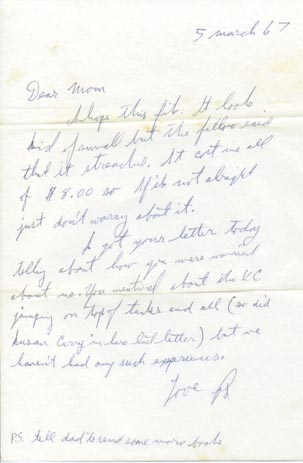 5 march 67
Dear Mom
I hope this fit. It look
kid of small but the fellow said
that it streaches. It cost me all
of $8.00 so if its not alright
just don't worry about it.
I got your letter today
telling about how you were worried
about me. You mentioned about the V.C.
jumping on top of tanks and all (so did
Susan in her last letter) but we
haven't had any such experiences.
Love
P.S. tell dad to send some more books